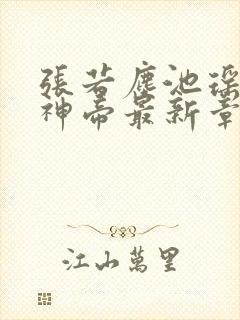 張若塵池瑤
神帝最新章
江山萬里